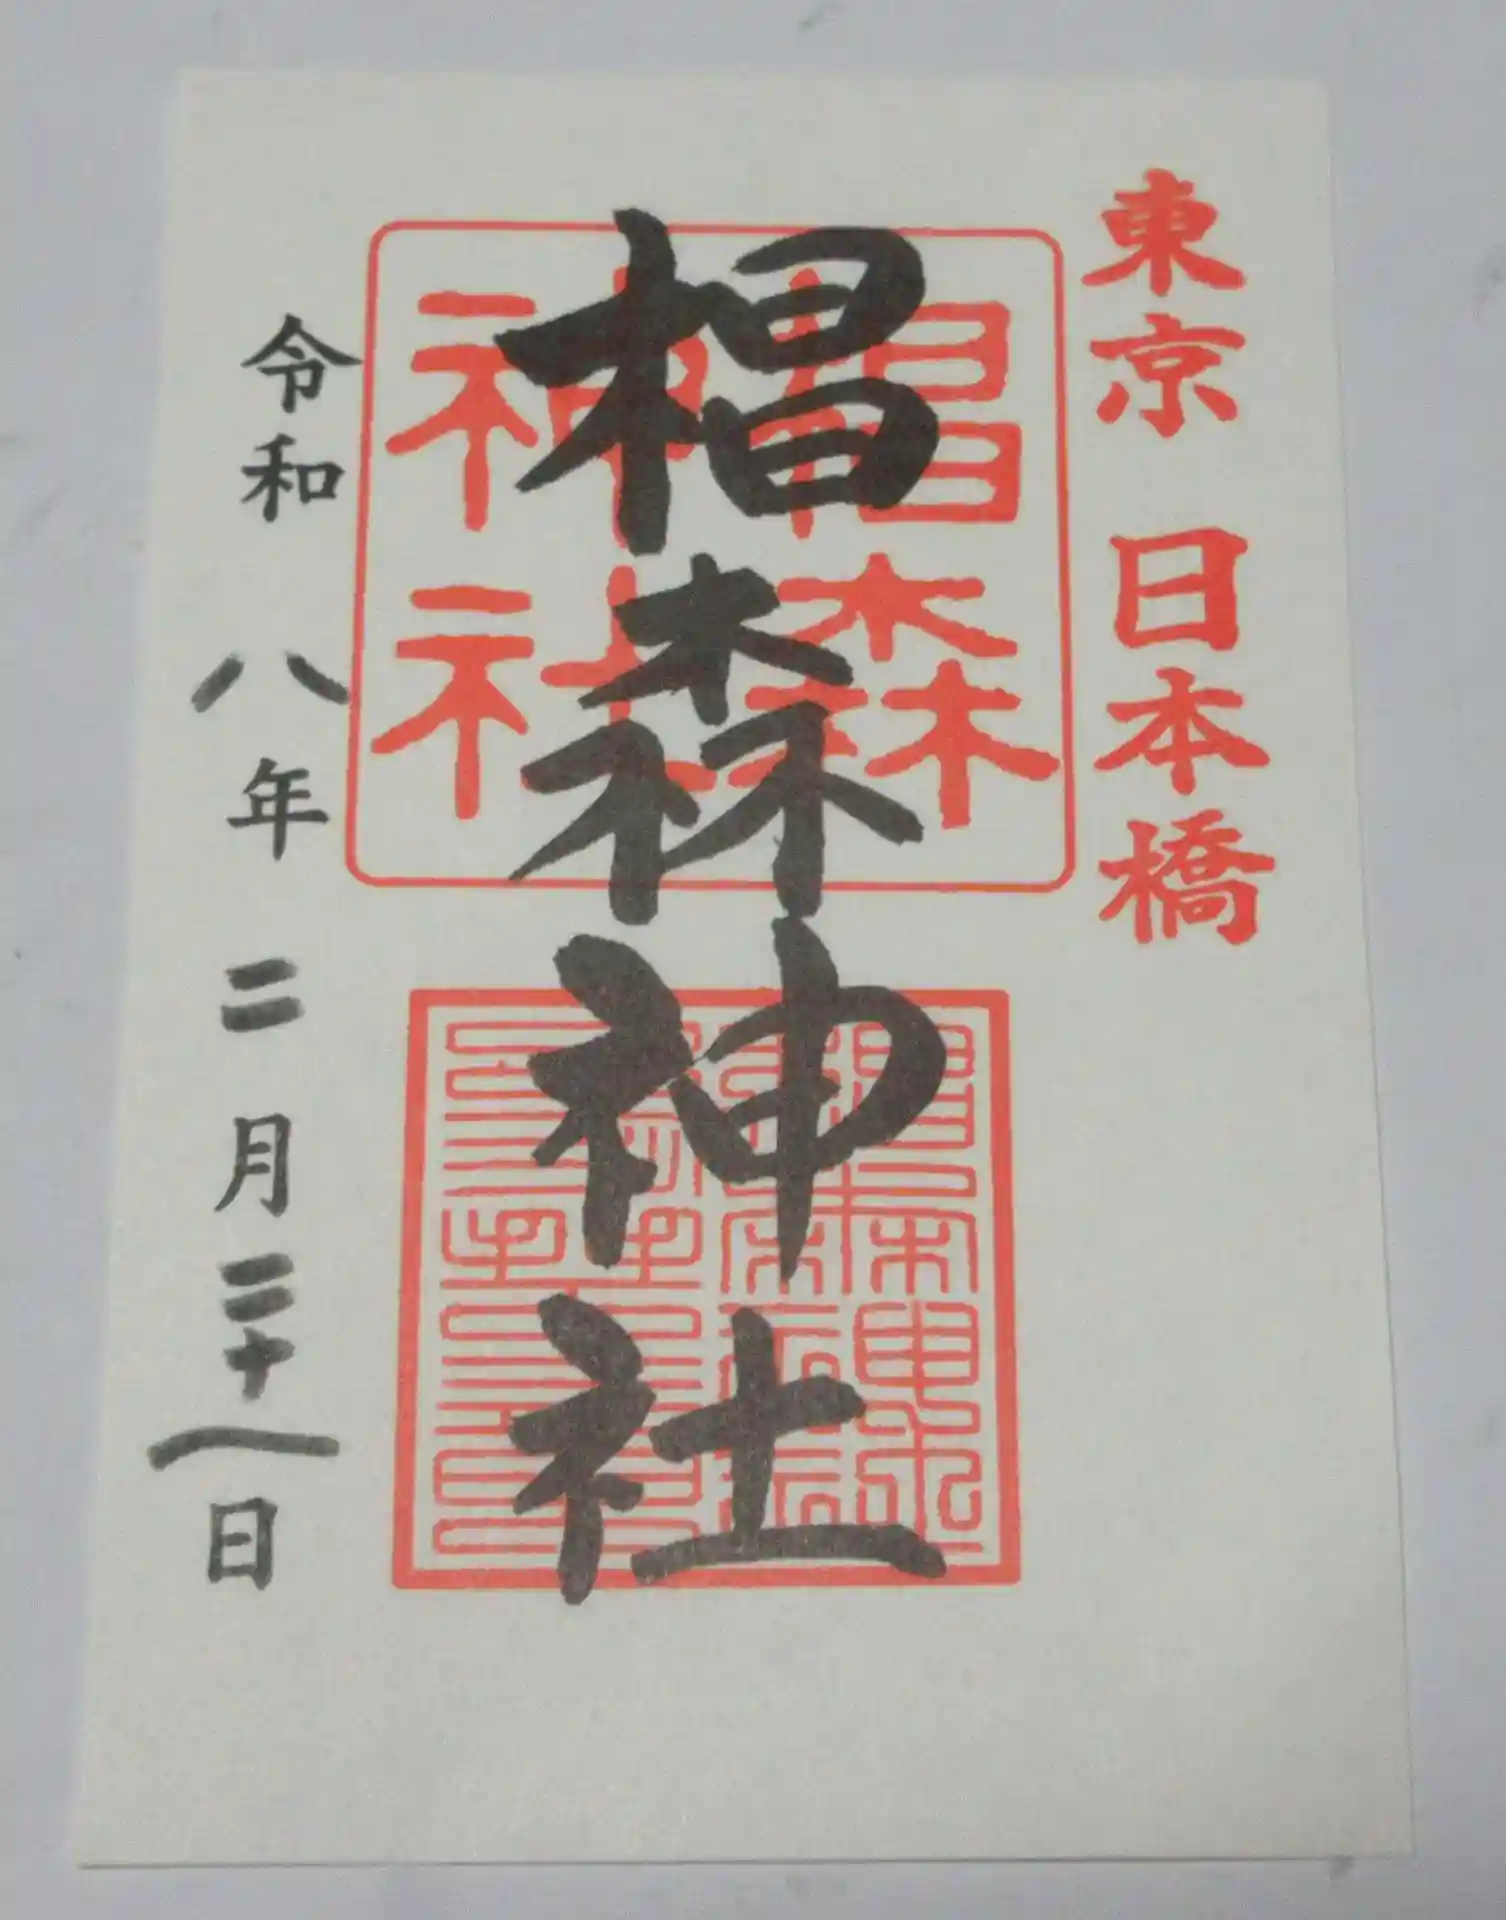 東京 日本橋
椙森
神社
椙森神社
令和 八年 二月 二十一日